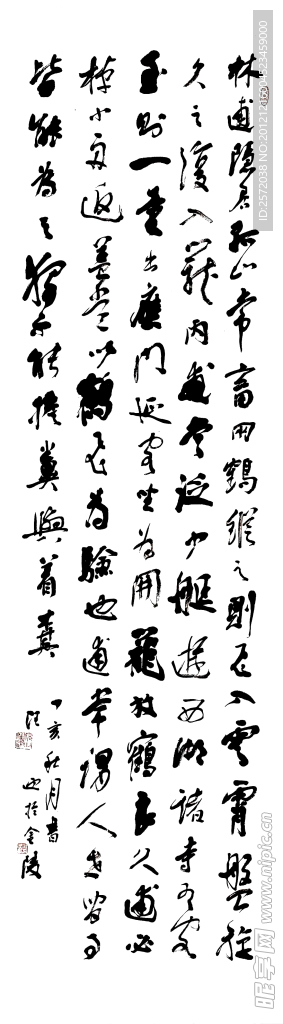 林逋隐居孤山常畜两鹤纵之则飞入云霄盘旋
久之复入笼内逋常泛小艇游西湖诸寺有客
至则一童出应门延客坐为开笼放鹤良久逋必
棹小舟返盖尝以鹤飞为验也逋常谓人曰世间事
皆能为之独不能担粪与着棋
丁亥秋月书
于金陵
ID:2572038
昵图网 www.nipic.cn